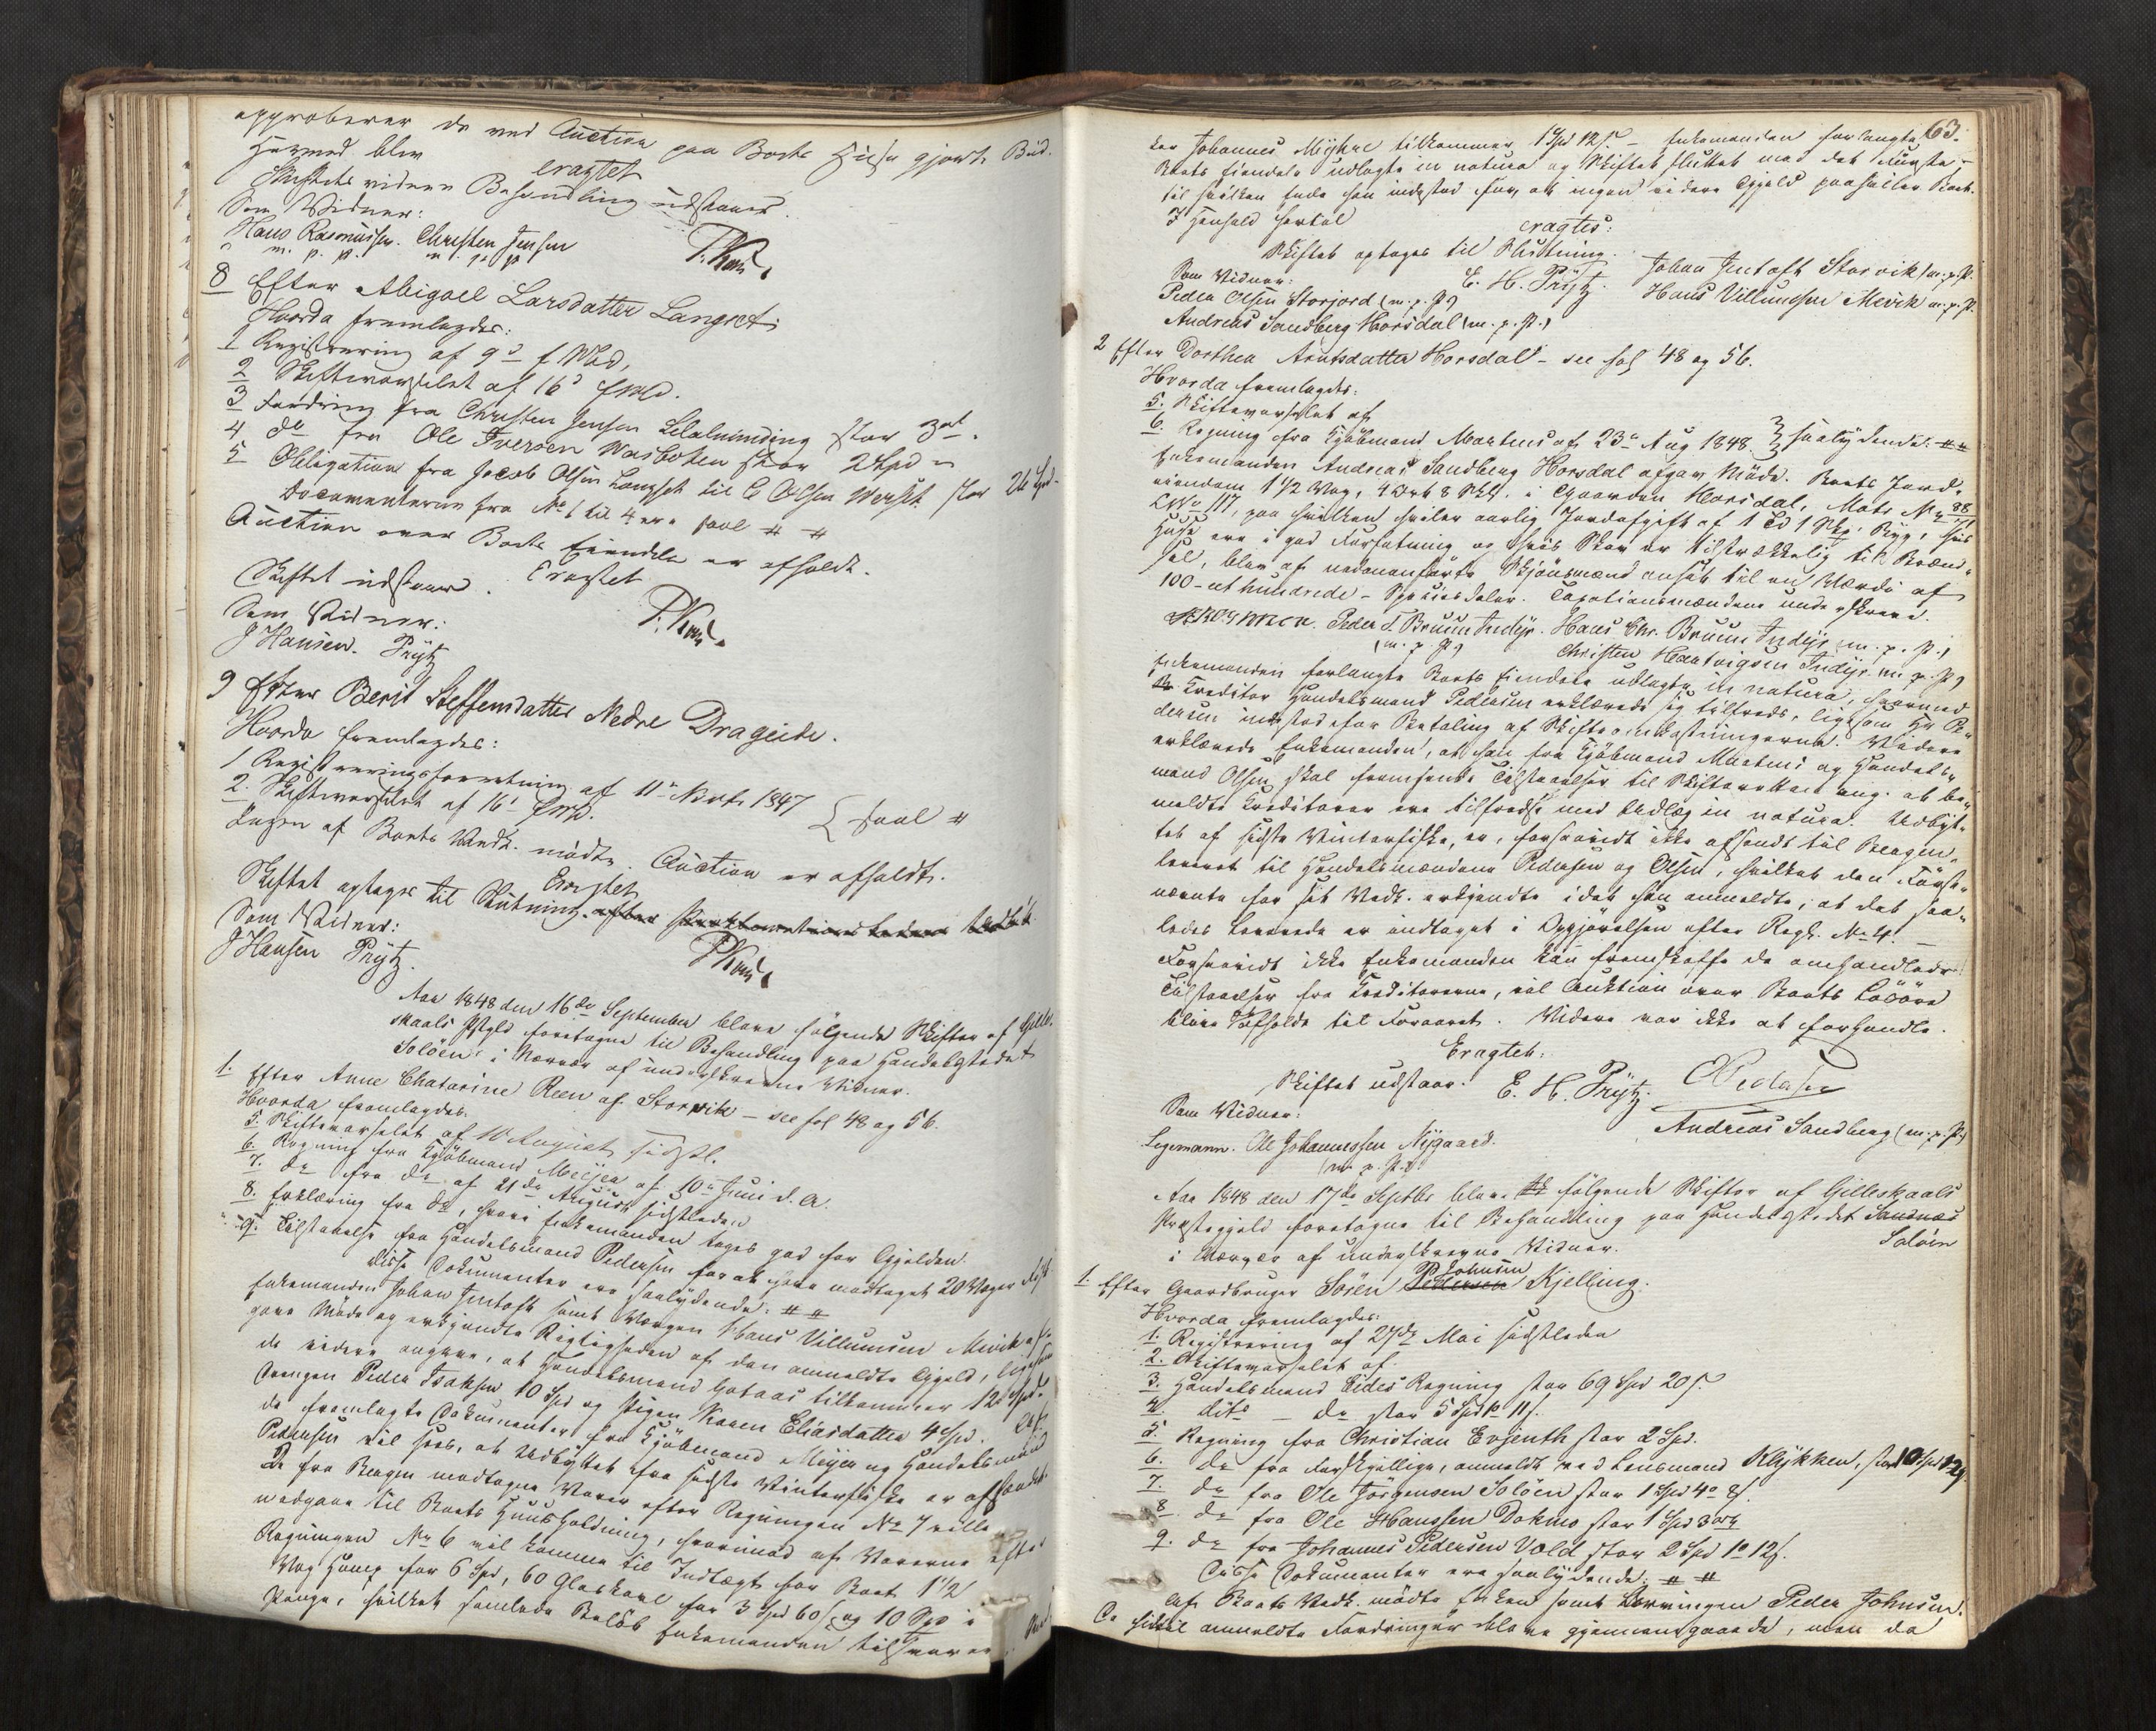 approberer de ved Auction paa Boets Eiend gjorte Bud.
Hermed blev
eragtet
Skiftets videre Behandling udstaaer.
Som Vidner:
Hans Rasmussen. Christen Jensen
m. p. P. m. p. P.
8 Efter Abigael Larsdatter Langset
Hvorda fremlagdes:
1 Registrering af 9de f. Md,
2 Skiftevarselet af 16de f. Md.
3 Fordring fra Christen Jensen stor
4 do fra Ole Iversen Wasbotten stor 2 Spd
5 Obligation fra Jacob Olsen Langset til C Olsen stor 24 Spd
Documenterne fra No 1 til 4 ere saal # #
Auction over Boets Eiendele er afholdt.
Eragtet
Skiftet udstaaer.
Som Vidner:
J Hansen. Prÿtz
9 Efter Berit Steffensdatter Nedre Drageide.
Hvorda fremlagdes:
1 Registreringsforretning af 11te Novbr 1847
2. Skiftevarselet af 16de f. Md. { saal #
Ingen af Boets Vedk. mødte. Auction er afholdt.
Eragtet
Skiftet optages til Slutning
Som Vidner:
J Hansen Prÿtz.
Aar 1848 den 16de September bleve følgende Skifter af Gilles-
kaals Pstgld foretagne til Behandling paa Handelsstedet
Soløen i Nærvær af underskrevne Vidner.
1. Efter Anne Chatarine Reen af Storvik – see fol 48 og 56.
Hvorda fremlagdes.
5. Skiftevarselet af 10 August sidstl.
6. Regning fra Kjøbmand Meÿer af 10de Juni d. A.
7. do fra do af 21de August sidstleden
8. Erklæring fra do, hvori Enkemanden tages god for Gjælden.
9. Tilstaaelse fra Handelsmand Pedersen for at have modtaget 20 Voger
disse Dokumenter ere saalydende: # #
Enkemanden Johan Jentoft samt Værgen Hans Villumsen Mevik af-
gave Møde og erkjendte Rigtigheden af den anmeldte Gjæld, ligesom
de videre angave, at Handelsmand Gotaas tilkommer 12 Spd.
Drengen Peder Isaksen 10 Spd og Pigen Karen Eliasdatter 4 Spd.
de fremlagte Dokumenter fra Kjøbmand Meÿer og Handelsmand
Pedersen vil sees, at Udbyttet fra sidste Vinterfiske er afsendt.
De fra Bergen modtagne Varer efter Regningen No 7 ville
medgaae til Boets Huusholdning, hvorimod af Varerne efter
Regningen No 6 vil komme til Indtægt for Boet 1 1/2
Vog Hamp for 6 Spd, 60 Glaskavl for 3 Spd 60 s og 10 Spd i
Penge, hvilket samlede Beløb Enkemanden tilsvarer.
63.
der Johannes Meÿer tilkommer 1 Spd 12 s. – Enkemanden forlangte
Boets Eiendele udlagte in natura og Skiftet sluttet med det første –
til hvilken Ende han indestod for, at ingen videre Gjæld paahviler Boet.
I Henhold hertil
eragtes:
Skiftet optages til Slutning.
Som Vidner: E. H. Prÿtz. Johan Jentoft Storvik (m. p. P.
Peder Olsen Storjord (m. p. P) Hans Villumsen Mevik m. p. P.
Andreas Sandberg Horsdal (m. p. P.)
2 Efter Dorthea Arntsdatter Horsdal – see fol 48 og 56.
Hvorda fremlagdes:
5. Skiftevarselet af
6. Regning fra Kjøbmand Martens af 23de Aug 1848. } saalydende: # #
Enkemanden Andreas Sandberg Horsdal afgav Møde. Boets Jord-
eiendom 1 1/2 Vog, 4 Ort 8 Skl. i Gaarden Horsdal, Matr No 88
LNo 117, paa hvilken hviler aarlig Jordafgift af 1 Td 1 Skp Byg, hvis
Huse ere i god Forfatning og hvis Skov er tilstrækkelig til Brænd-
sel, blev af nedenanførte Skjønsmænd ansat til en Værdi af
100 – et hundrede – Speciesdaler. Taxationsmændene underskreve.
Peder J Bruun Indijr. Hans Chr. Bruun Indijr m. p. P.)
(m. p. P) Christen Hartvigsen Indijr m. p. P)
Enkemanden forlangte Boets Eiendele udlagte in natura, hvormed
Kreditor Handelsmand Pedersen erklærede sig tilfreds, ligesom Hr Pe-
dersen indestod for Betaling af Skifteomkostningerne. Videre
erklærede Enkemanden, at han fra Kjøbmand Martens og Handels-
mand Olsen skal fremsende Tilstaaelser til Skifteretten ang. at be-
meldte Kreditorer ere tilfredse med Udlæg in natura. Udbyt-
tet af sidste Vinterfiske, er, forsaavidt ikke afsendt til Bergen,
leveret til Handelsmændene Pedersen og Olsen, hvilket den Først-
nævnte for sit Vedk. erkjendte idet han anmeldte, at det saa-
ledes leverede er indtaget i Opgjørelsen efter Regk. No 4. –
Forsaavidt ikke Enkemanden kan fremskaffe de omhandlede
Tilstaaelser fra Kreditorerne, vil Auktion over Boets Løsøre
blive afholdt til Foraaret. Videre var ikke at forhandle.
Eragtet:
Skiftet udstaar. E. H. Prÿtz. Pedersen
Som Vidner: Andreas Sandberg (m. p. P.)
Legemann. Ole Johannessen Nÿgaard.
(m. p. P.)
Aar 1848 den 17de Septbr bleve følgende Skifter af Gilleskaals
Præstegjeld foretagne til Behandling paa Handelsstedet Sandnæs
Soløen
i Nærvær af underskrevne Vidner.
1. Efter Gaardbruger Søren Pedersen Johnsen Kjelling.
Hvorda fremlagdes:
1. Registrering af 27de Mai sidstleden
2. Skiftevarselet af
3. Handelsmand Eides Regning stor 69 Spd 20 s.
4. dito – do stor 5 Spd 1o 11 s.
5. Regning fra Christian Evjenth stor 2 Spd.
6. do fra Forskjellige, anmeldt ved Lensmand Klÿkken, stor 10 Spd
7. do fra Ole Jørgensen Soløen stor 1 Spd 4o 8 s.
8. do fra Ole Hanssen Dokmo stor 1 Spd 3 ort
9. do fra Johannes Pedersen Vold stor 2 Spd 1o 12 s.
Disse Dokumenter ere saalydende: # #
Af Boets Vedk. mødte Enken samt Værgen Peder Johnsen.
De hidtil anmeldte Fordringer bleve gjennemgaaede, men da